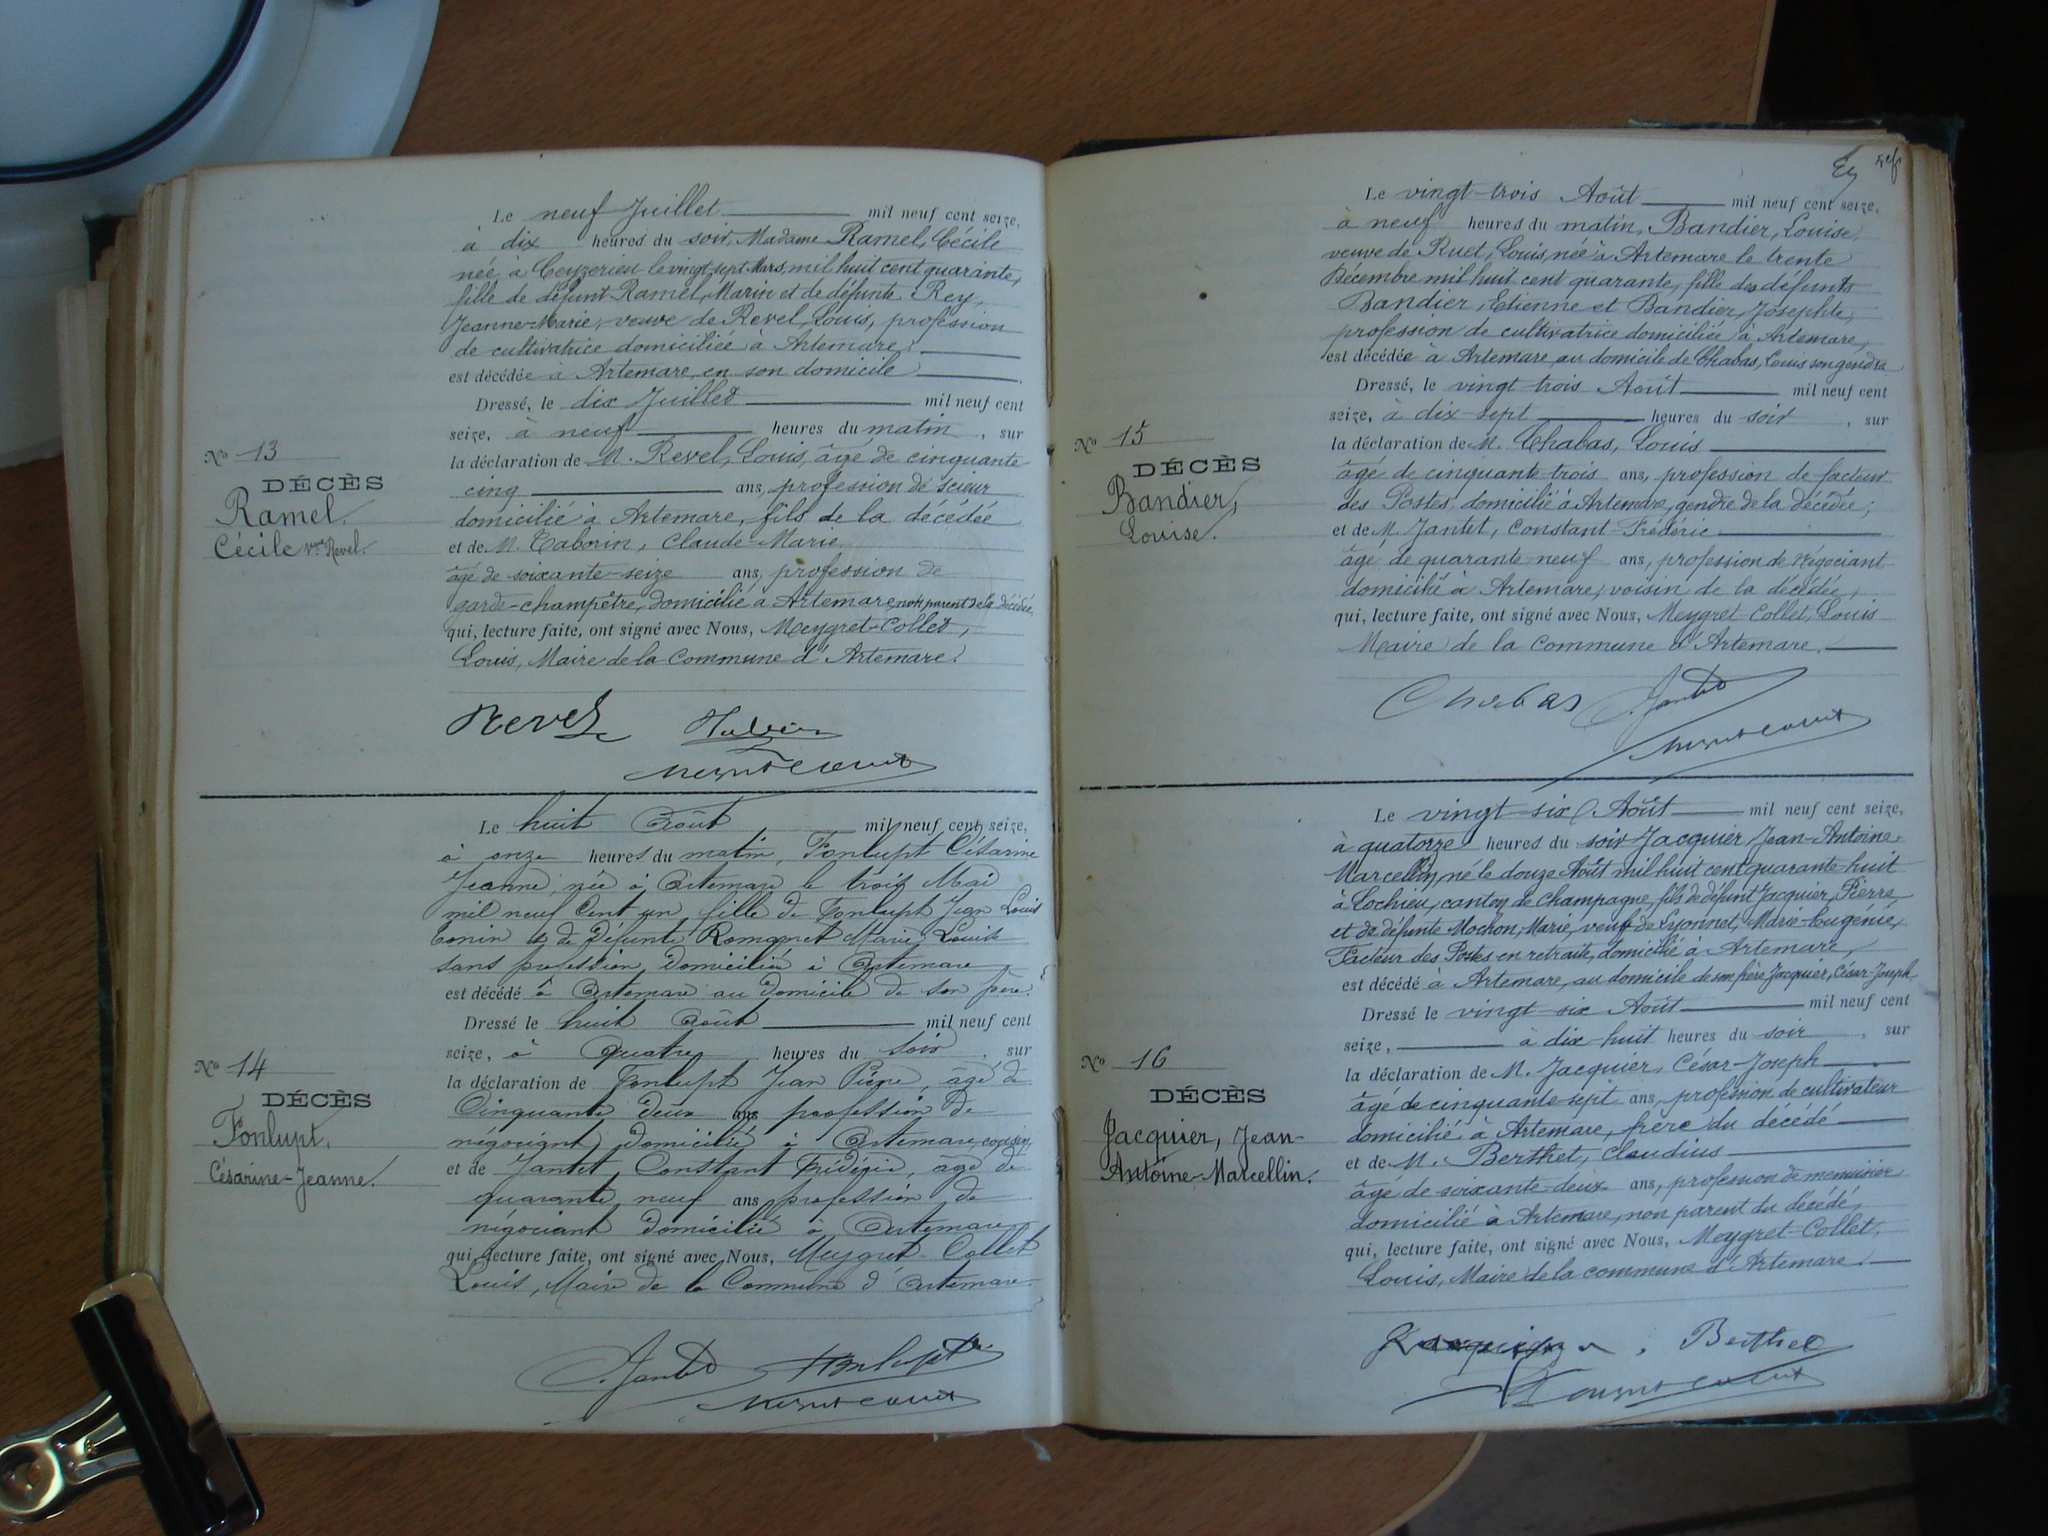 Le neuf Juillet mil neuf cent seize,
à dix heures du soir, Madame Ramel, Cécile
née à Ceyzerieu le vingt sept Mars mil huit cent quarante,
fille de défunt Ramel, Marin et de défunte Rey,
Jeanne-Marie, veuve de Revel, Louis, profession
de cultivatrice domiciliée à Artemare,
est décédée à Artemare, en son domicile
Dressé, le dix Juillet mil neuf cent
seize, à neuf heures du matin, sur
la déclaration de M. Revel, Louis, âgé de cinquante
cinq ans, profession de scieur
domicilié à Artemare, fils de la décédée
et de M. Claude-Marie
âgé de soixante-seize ans, profession de
garde-champêtre, domicilié à Artemare, non parent de la décédée,
qui, lecture faite, ont signé avec Nous, Meygret-Collet,
Louis, Maire de la Commune d'Artemare.
No 13
DÉCÈS
Ramel,
Cécile vve Revel.
Revel
Le huit Août mil neuf cent seize,
à onze heures du matin, Fonlupt Césarine
Jeanne, née à Artemare le trois Mai
mil neuf Cent un, fille de Fonlupt Jean Louis
Tonin et de défunte Romanet Marie Louise
sans profession, domiciliée à Artemare
est décédé à Artemare au domicile de son père.
Dressé le huit Août mil neuf cent
seize, à quatre heures du soir, sur
la déclaration de Fonlupt Jean Pierre, âgé de
Cinquante deux ans profession de
négociant, domicilié à Artemare, cousin,
et de Jantet, Constant Frédéric, âgé de
quarante neuf ans, profession de
négociant domicilié à Artemare
qui, lecture faite, ont signé avec Nous, Meygret-Collet
Louis, Maire de la Commune d'Artemare
No 14
DÉCÈS
Fonlupt,
Césarine-Jeanne.
Fonlupt
Le vingt-trois Août mil neuf cent seize,
à neuf heures du matin, Bandier, Louise,
veuve de Ruet, Louis, née à Artemare le trente
Décembre mil huit cent quarante, fille des défunts
Bandier, Etienne et Bandier, Josephte,
profession de cultivatrice domiciliée à Artemare,
est décédée à Artemare, au domicile de Chabas, Louis son gendre
Dressé, le vingt trois Août mil neuf cent
seize, à dix-sept heures du soir, sur
la déclaration de M. Chabas, Louis
âgé de cinquante-trois ans, profession de facteur
des Postes, domicilié à Artemare, gendre de la décédée,
et de M. Jantet, Constant-Frédéric
âgé de quarante-neuf ans, profession de négociant
domicilié à Artemare, voisin de la décédée,
qui, lecture faite, ont signé avec Nous, Meygret-Collet, Louis
Maire de la Commune d'Artemare.
No 15
DÉCÈS
Bandier,
Louise.
Chabas
Le vingt-six Août mil neuf cent seize,
à quatorze heures du soir Jacquier, Jean-Antoine-
Marcellin, né le douze Août mil huit cent quarante-huit
à Lochieu, canton de Champagne, fils de défunt Jacquier, Pierre
et de défunte Mochon, Marie, veuf de Lyonnet, Marie-Eugénie,
Facteur des Postes en retraite, domicilié à Artemare,
est décédé à Artemare, au domicile de son frère Jacquier, César-Joseph
Dressé le vingt six Août mil neuf cent
seize, à dix-huit heures du soir, sur
la déclaration de M. Jacquier, César-Joseph
âgé de cinquante-sept ans, profession de cultivateur
domicilié à Artemare, frère du décédé
et de M. Berthet, Claudius
âgé de soixante-deux ans, profession de menuisier
domicilié à Artemare, non parent du décédé,
qui, lecture faite, ont signé avec Nous, Meygret-Collet,
Louis, Maire de la commune d'Artemare.
No 16
DÉCÈS
Jacquier, Jean-
Antoine-Marcellin.
Berthet